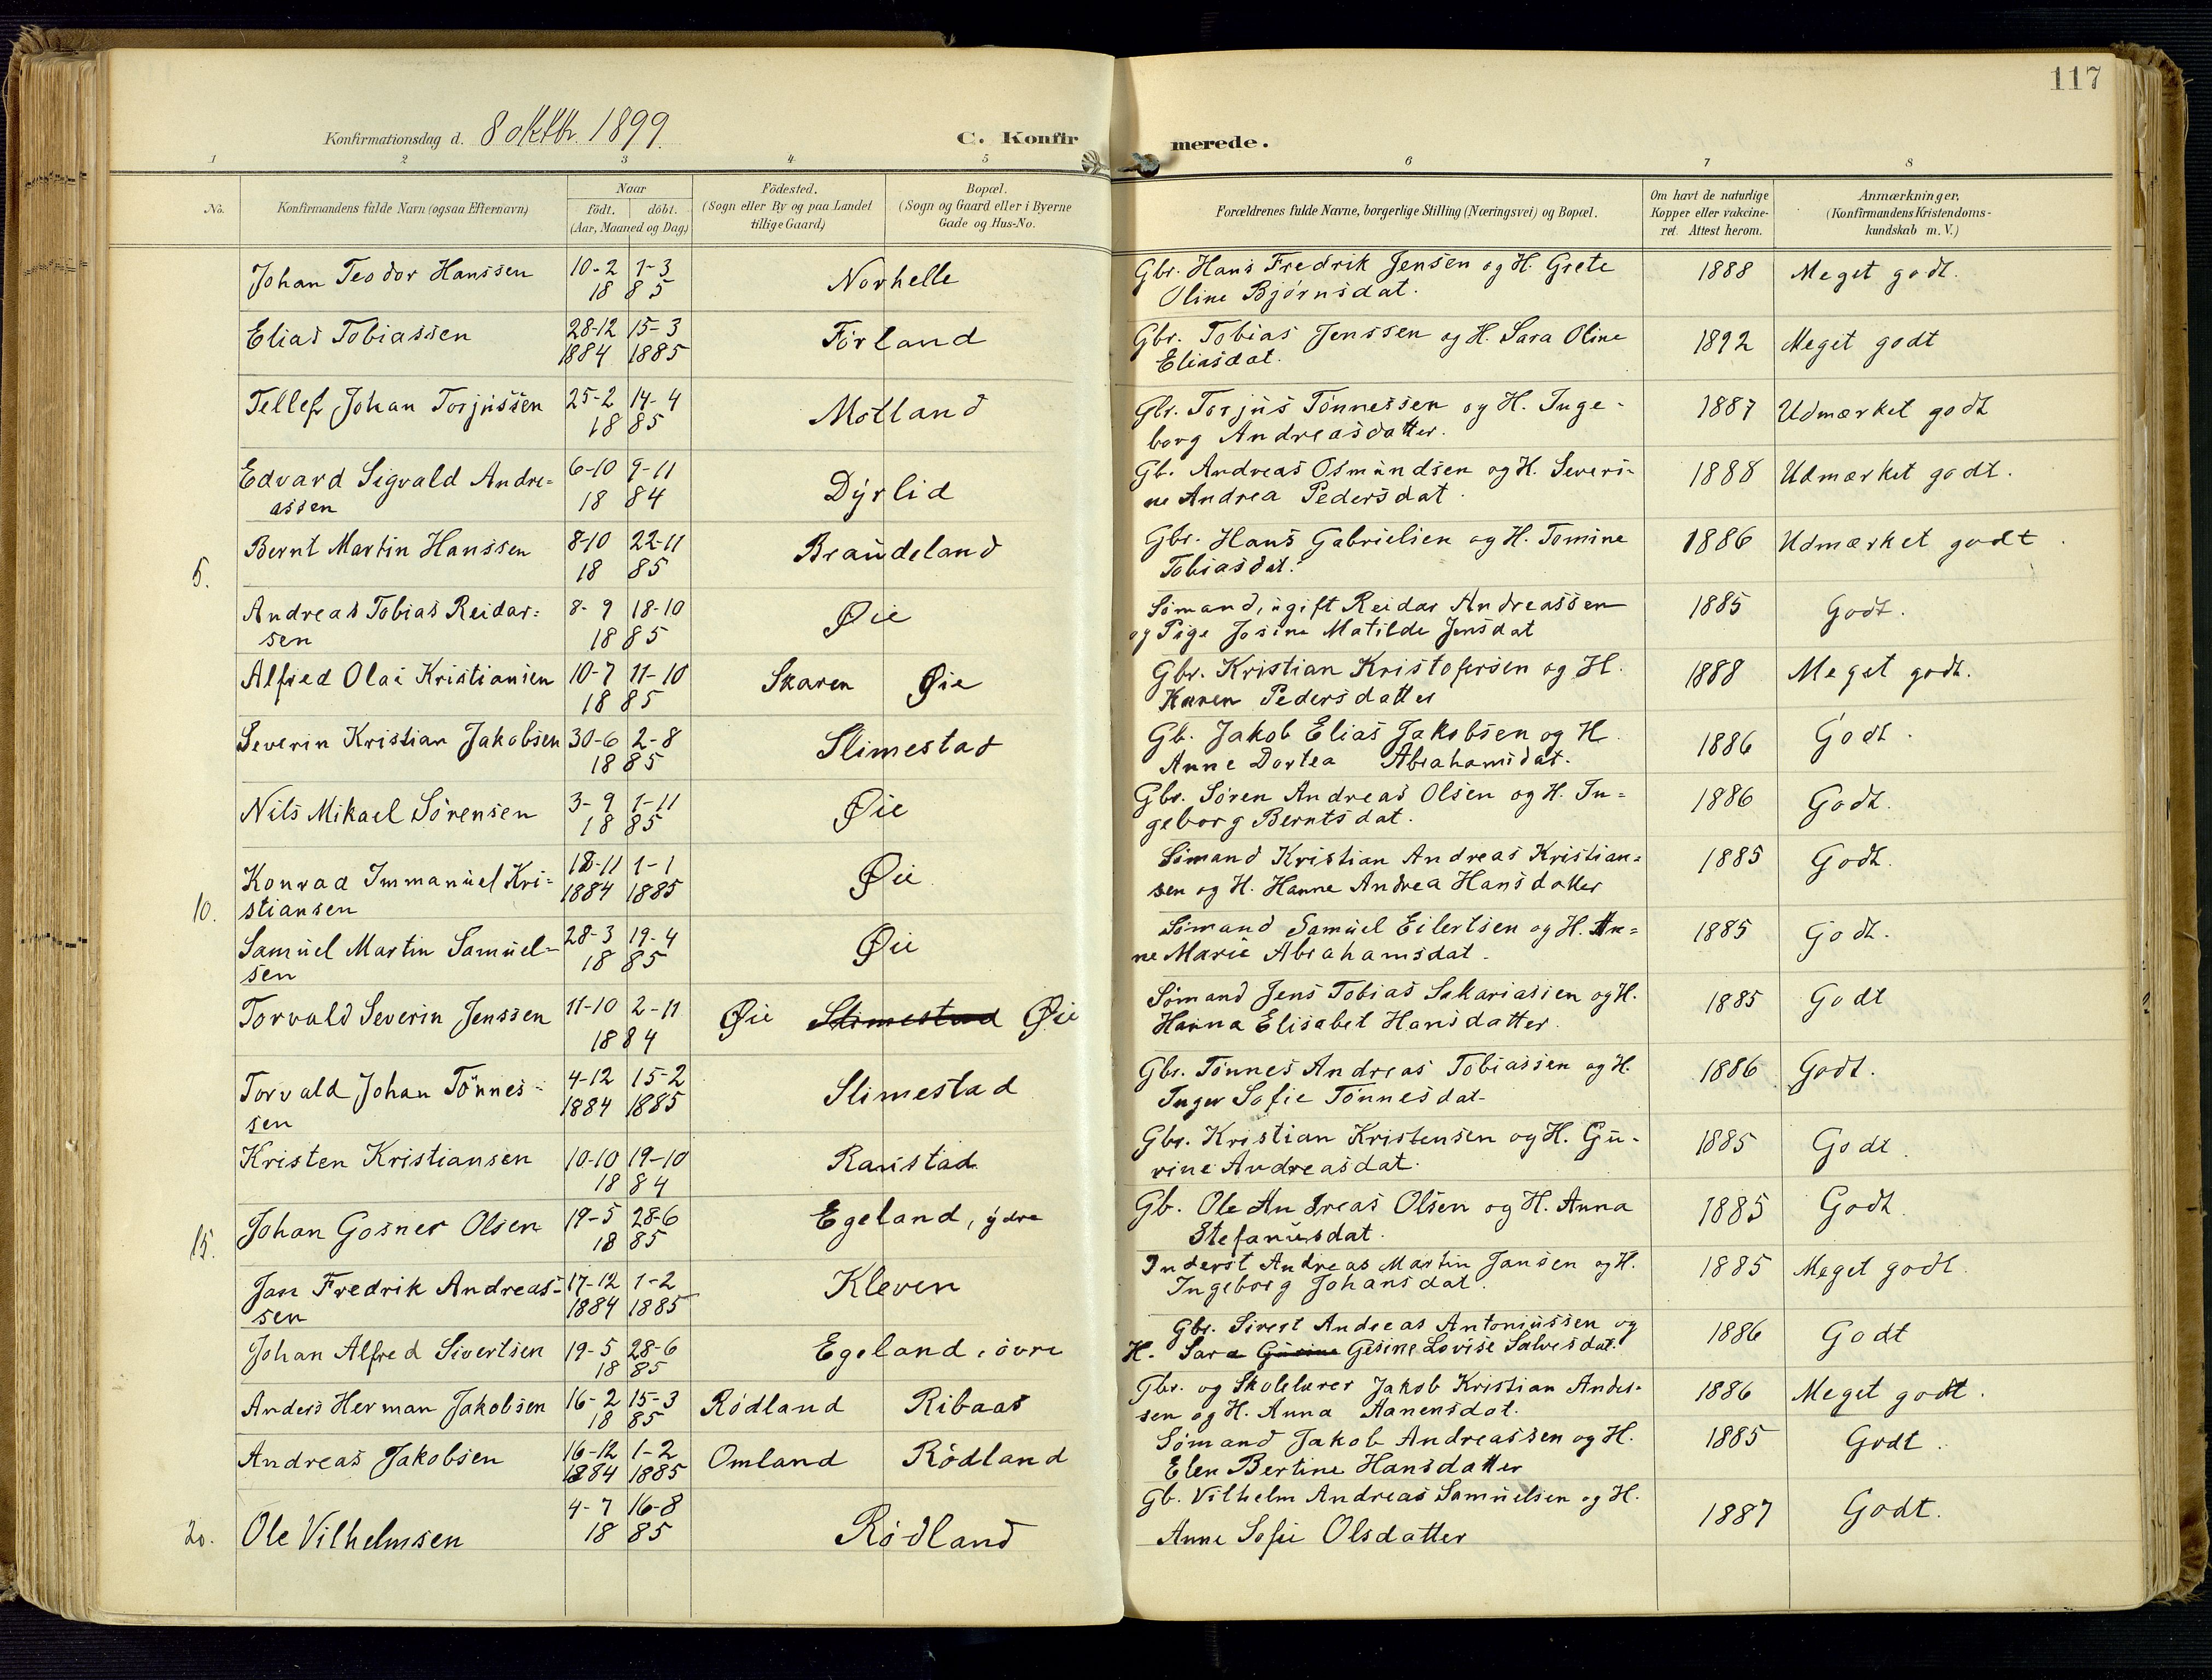 117
Konfirmationsdag d. 8 oktbr. 1899.
C. Konfirmerede.
1 2 3 4 5 6 7 8
No.
Konfirmandens fulde Navn (ogsaa Efternavn)
Naar
födt. döbt.
(Aar, Maaned og Dag)
Födested.
(Sogn eller By og paa Landet
tillige Gaard)
Bopæl.
(Sogn og Gaard eller i Byerne
Gade og Hus-No.
Forældrenes fulde Navne, borgerlige Stilling (Næringsvei) og Bopæl.
Om havt de naturlige
Kopper eller vakcine-
ret. Attest herom.
Anmærkninger,
(Konfirmandens Kristendoms-
kundskab m. V.)
Johan Teodor Hanssen 10-2 1-3 1885 Norhelle Gbr. Hans Fredrik Jensen og H. Grete
Oline Bjørnsdat. 1888 Meget godt.
Elias Tobiassen 28-12 1884 15-3 1885 Förland Gbr. Tobias Jenssen og H. Sara Oline
Eliasdat. 1892 Meget godt
Tellef Johan Torjussen 25-2 14-4 1885 Motland Gbr. Torjus Tönnessen og H. Inge-
borg Andreasdatter. 1887 Udmærket godt
Edvard Sigvald Andre=
assen 6-10 9-11 1884 Dyrlid Gb. Andreas Osmundsen og H. Severi-
ne Andrea Pedersdat. 1888 Udmærket godt.
5. Bernt Martin Hanssen 8-10 22-11 1885 Braudeland Gbr. Hans Gabrielsen og H. Tomine
Tobiasdat. 1886 Udmærket godt.
Andreas Tobias Reidar=
sen 8-9 18-10 1885 Øie Sömand, ugift Reidar Andreassen
og Pige Josine Matilde Jensdat 1885 Godt.
Alfred Olai Kristiansen 10-7 11-10 1885 Skaren Øie Gbr. Kristian Kristofersen og H.
Karen Pedersdatter 1888 Meget godt.
Severin Kristian Jakobsen 30-6 2-8 1885 Slimestad Gb. Jakob Elias Jakobsen og H.
Anne Dortea Abrahamsdat. 1886 Godt.
Nils Mikael Sörensen 3-9 1-11 1885 Øie Gbr. Sören Andreas Olsen og H. In=
geborg Berntsdat. 1886 Godt.
10. Konrad Immanuel Kri=
stiansen 18-11 1884 1-1 1885 Øie Sömand Kristian Andreas Kristian=
sen og H. Hanne Andrea Hansdatter 1885 Godt.
Samuel Martin Samuel=
sen 28-3 19-4 1885 Øie Sömand Samuel Eilertsen og H. An=
ne Marie Abrahamsdat. 1885 Godt.
Torvald Severin Jenssen 11-10 2-11 1884 Øie Slimestad Øie Sömand Jens Tobias Sakariasien og H.
Hanna Elisabet Hansdatter. 1885 Godt
Torvald Johan Tönnes-
sen 4-12 1884 15-2 1885 Slimestad Gbr. Tönnes Andreas Tobiassen og H.
Inger Sofie Tönnesdat. 1886 Godt.
Kristen Kristiansen 10-10 19-10 1884 Raustad Gbr. Kristian Kristensen og H. Gu-
rine Andreasdat. 1885 Godt.
15. Johan Gosner Olsen 19-5 28-6 1885 Egeland, ydre Gb. Ole Andreas Olsen og H. Anna
Stefanusdat. 1885 Godt.
Jan Fredrik Andreas=
sen 17-12 1884 1-2 1885 Kleven Inderst Andreas Martin Jansen og H.
Ingeborg Johansdat. 1885 Meget godt.
Johan Alfred Sivertsen 19-5 28-6 1885 Egeland, övre Gbr. Sivert Andreas Antoniussen og
H. Sara Gurine Gesine Lovise Salvesdat. 1886 Godt
Anders Herman Jakobsen 16-2 15-3 1885 Rödland Ribaas Gbr. og Skolelærer Jakob Kristian Ander-
sen og H. Anna Aanensdat. 1886 Meget godt.
Andreas Jakobsen 16-12 1884 1-2 1885 Omland Rödland Sömand Jakob Andreassen og H.
Elen Bertine Hansdatter 1885 Godt.
20. Ole Vilhelmsen 4-7 16-8 1885 Rödland Gb. Vilhelm Andreas Samuelsen og H.
Anne Sofie Olsdatter 1887 Godt.